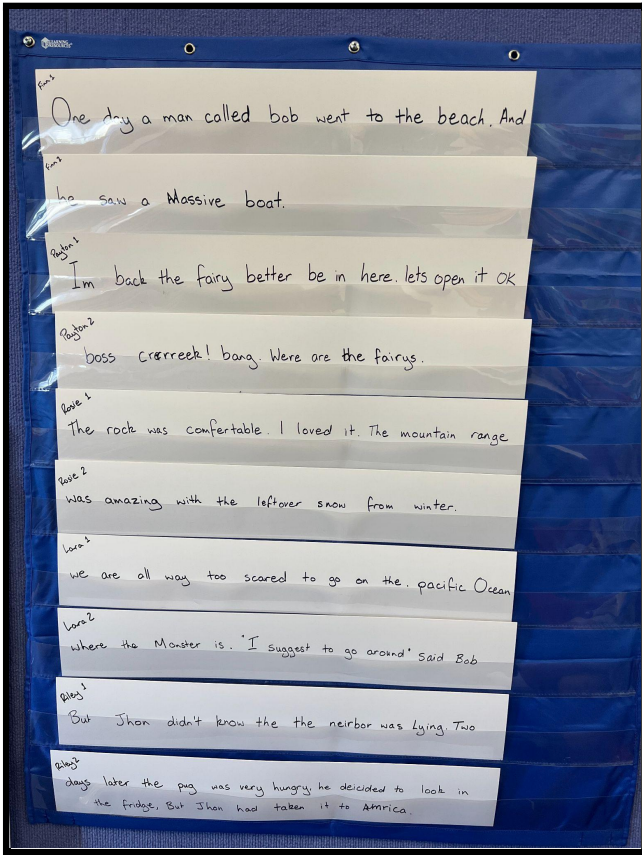 LEARNING
RESOURCES
Finn 1
One day a man called bob went to the beach. And
Finn 2
he saw a Massive boat.
Payton 1
Im back the fairy better be in here. lets open it OK
Payton 2
boss crerreek! bang. Were are the fairys.
Rosie 1
The rock was comfertable. I loved it. The mountain range
Rosie 2
was amazing with the leftover snow from winter.
Lara 1
we are all way too scared to go on the. pacific Ocean
Lara 2
where the Monster is. "I suggest to go around" said Bob
Riley 1
But Jhon didn't know the the neirbor was Lying. Two
Riley 2
days later the pug was very hungry. he decided to look in
the fridge, But Jhon had taken it to Amrica.